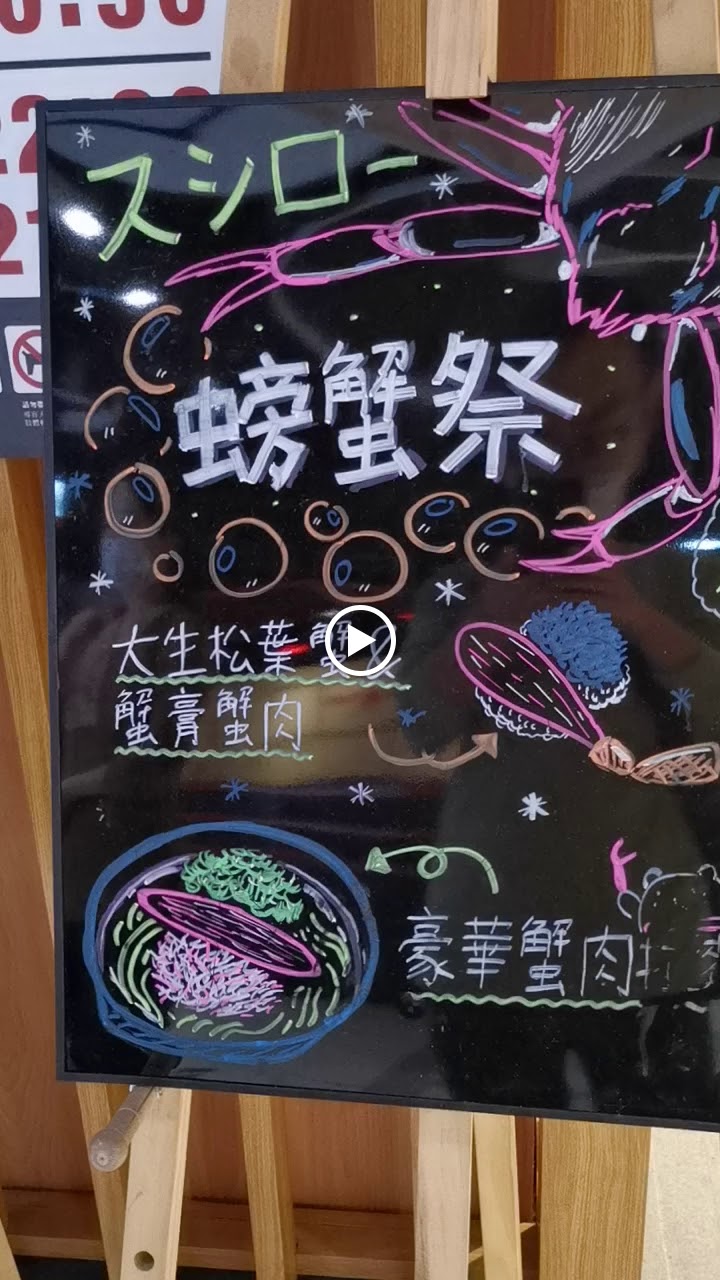 スシロー
螃蟹祭
大生松葉蟹&
蟹膏蟹肉
豪華蟹肉拉